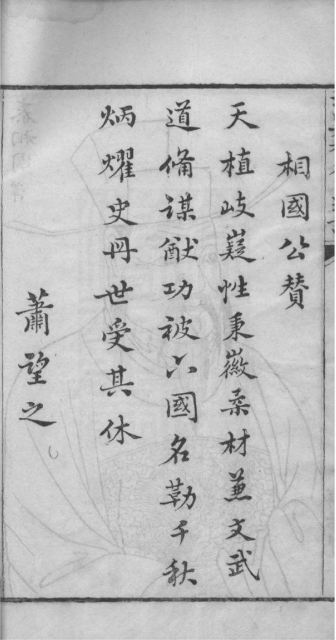 相國公贊
天植岐嶷性秉徽柔材蕙文武
道俻謀猷功被六國名勒千秋
炳耀史册世受其休
蕭望之